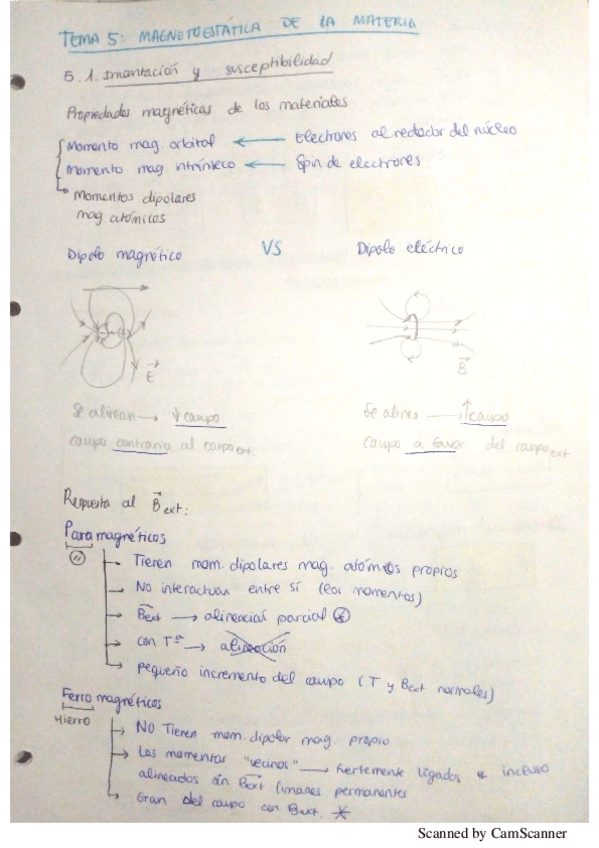 TEMA 5: MAGNETOESTÁTICA DE LA MATERIA
5.1. Imantación y susceptibilidad
Propiedades magnéticas de los materiales
Momento mag. orbital ← Electrones alrededor del núcleo
Momento mag. intrínseco ← Spin de electrones
Momentos dipolares
mag. atómicos
Dipolo magnético VS Dipolo eléctrico
E
B
Se alinean → ↓ campo
Se alinea → ↑ campo
campo contrario al campo ext.
campo a favor del campo ext
Respuesta al B ext:
Paramagnéticos
Tienen mom. dipolares mag. atómicos propios
No interactuan entre sí (los momentos)
Bext → alineación parcial
con Tª → alineación
pequeño incremento del campo (T y Bext normales)
Ferromagnéticos
Hierro
NO Tienen mom. dipolar mag. propio
Los momentos "vecinos" → fuertemente ligados e incluso
alineados sin Bext (imanes permanentes
Gran del campo con Bext. *
Scanned by CamScanner